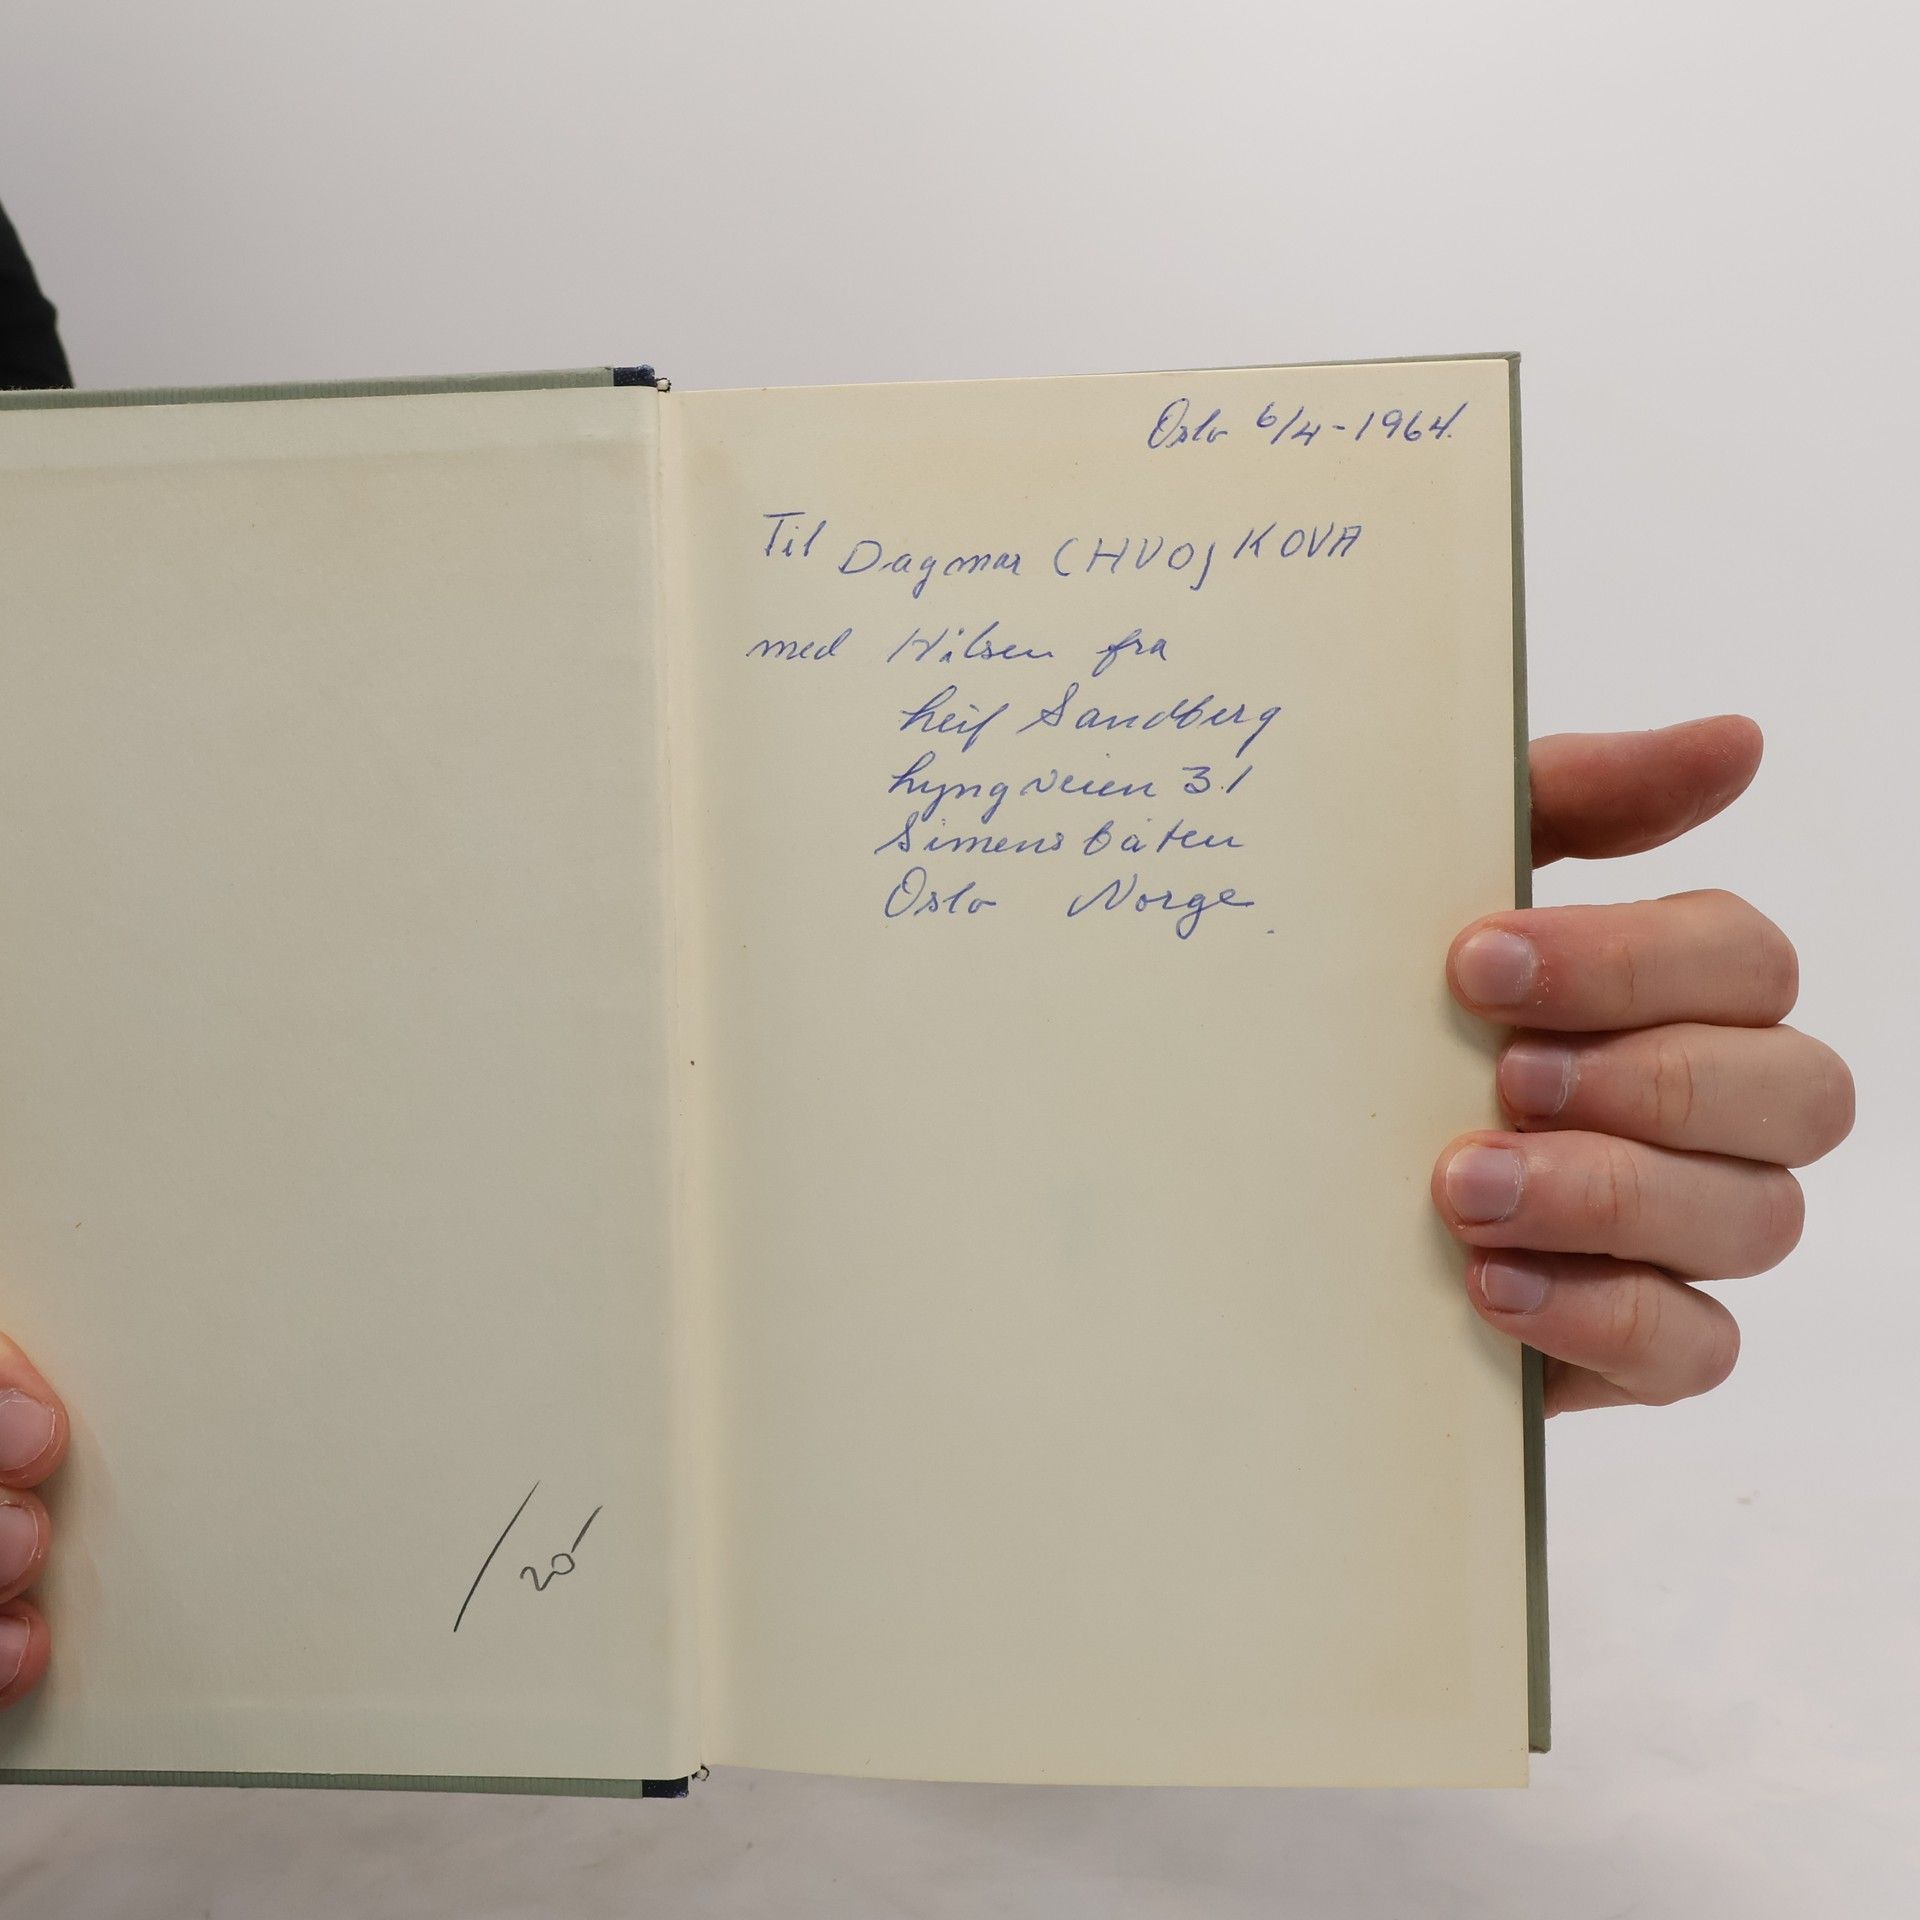 Oslo 6/4-1964.
Til Dagmar CHVOJKOVA
med Hilsen fra
Leif Sandberg
Lyngveien 31
Simensbåten
Oslo Norge.
/20